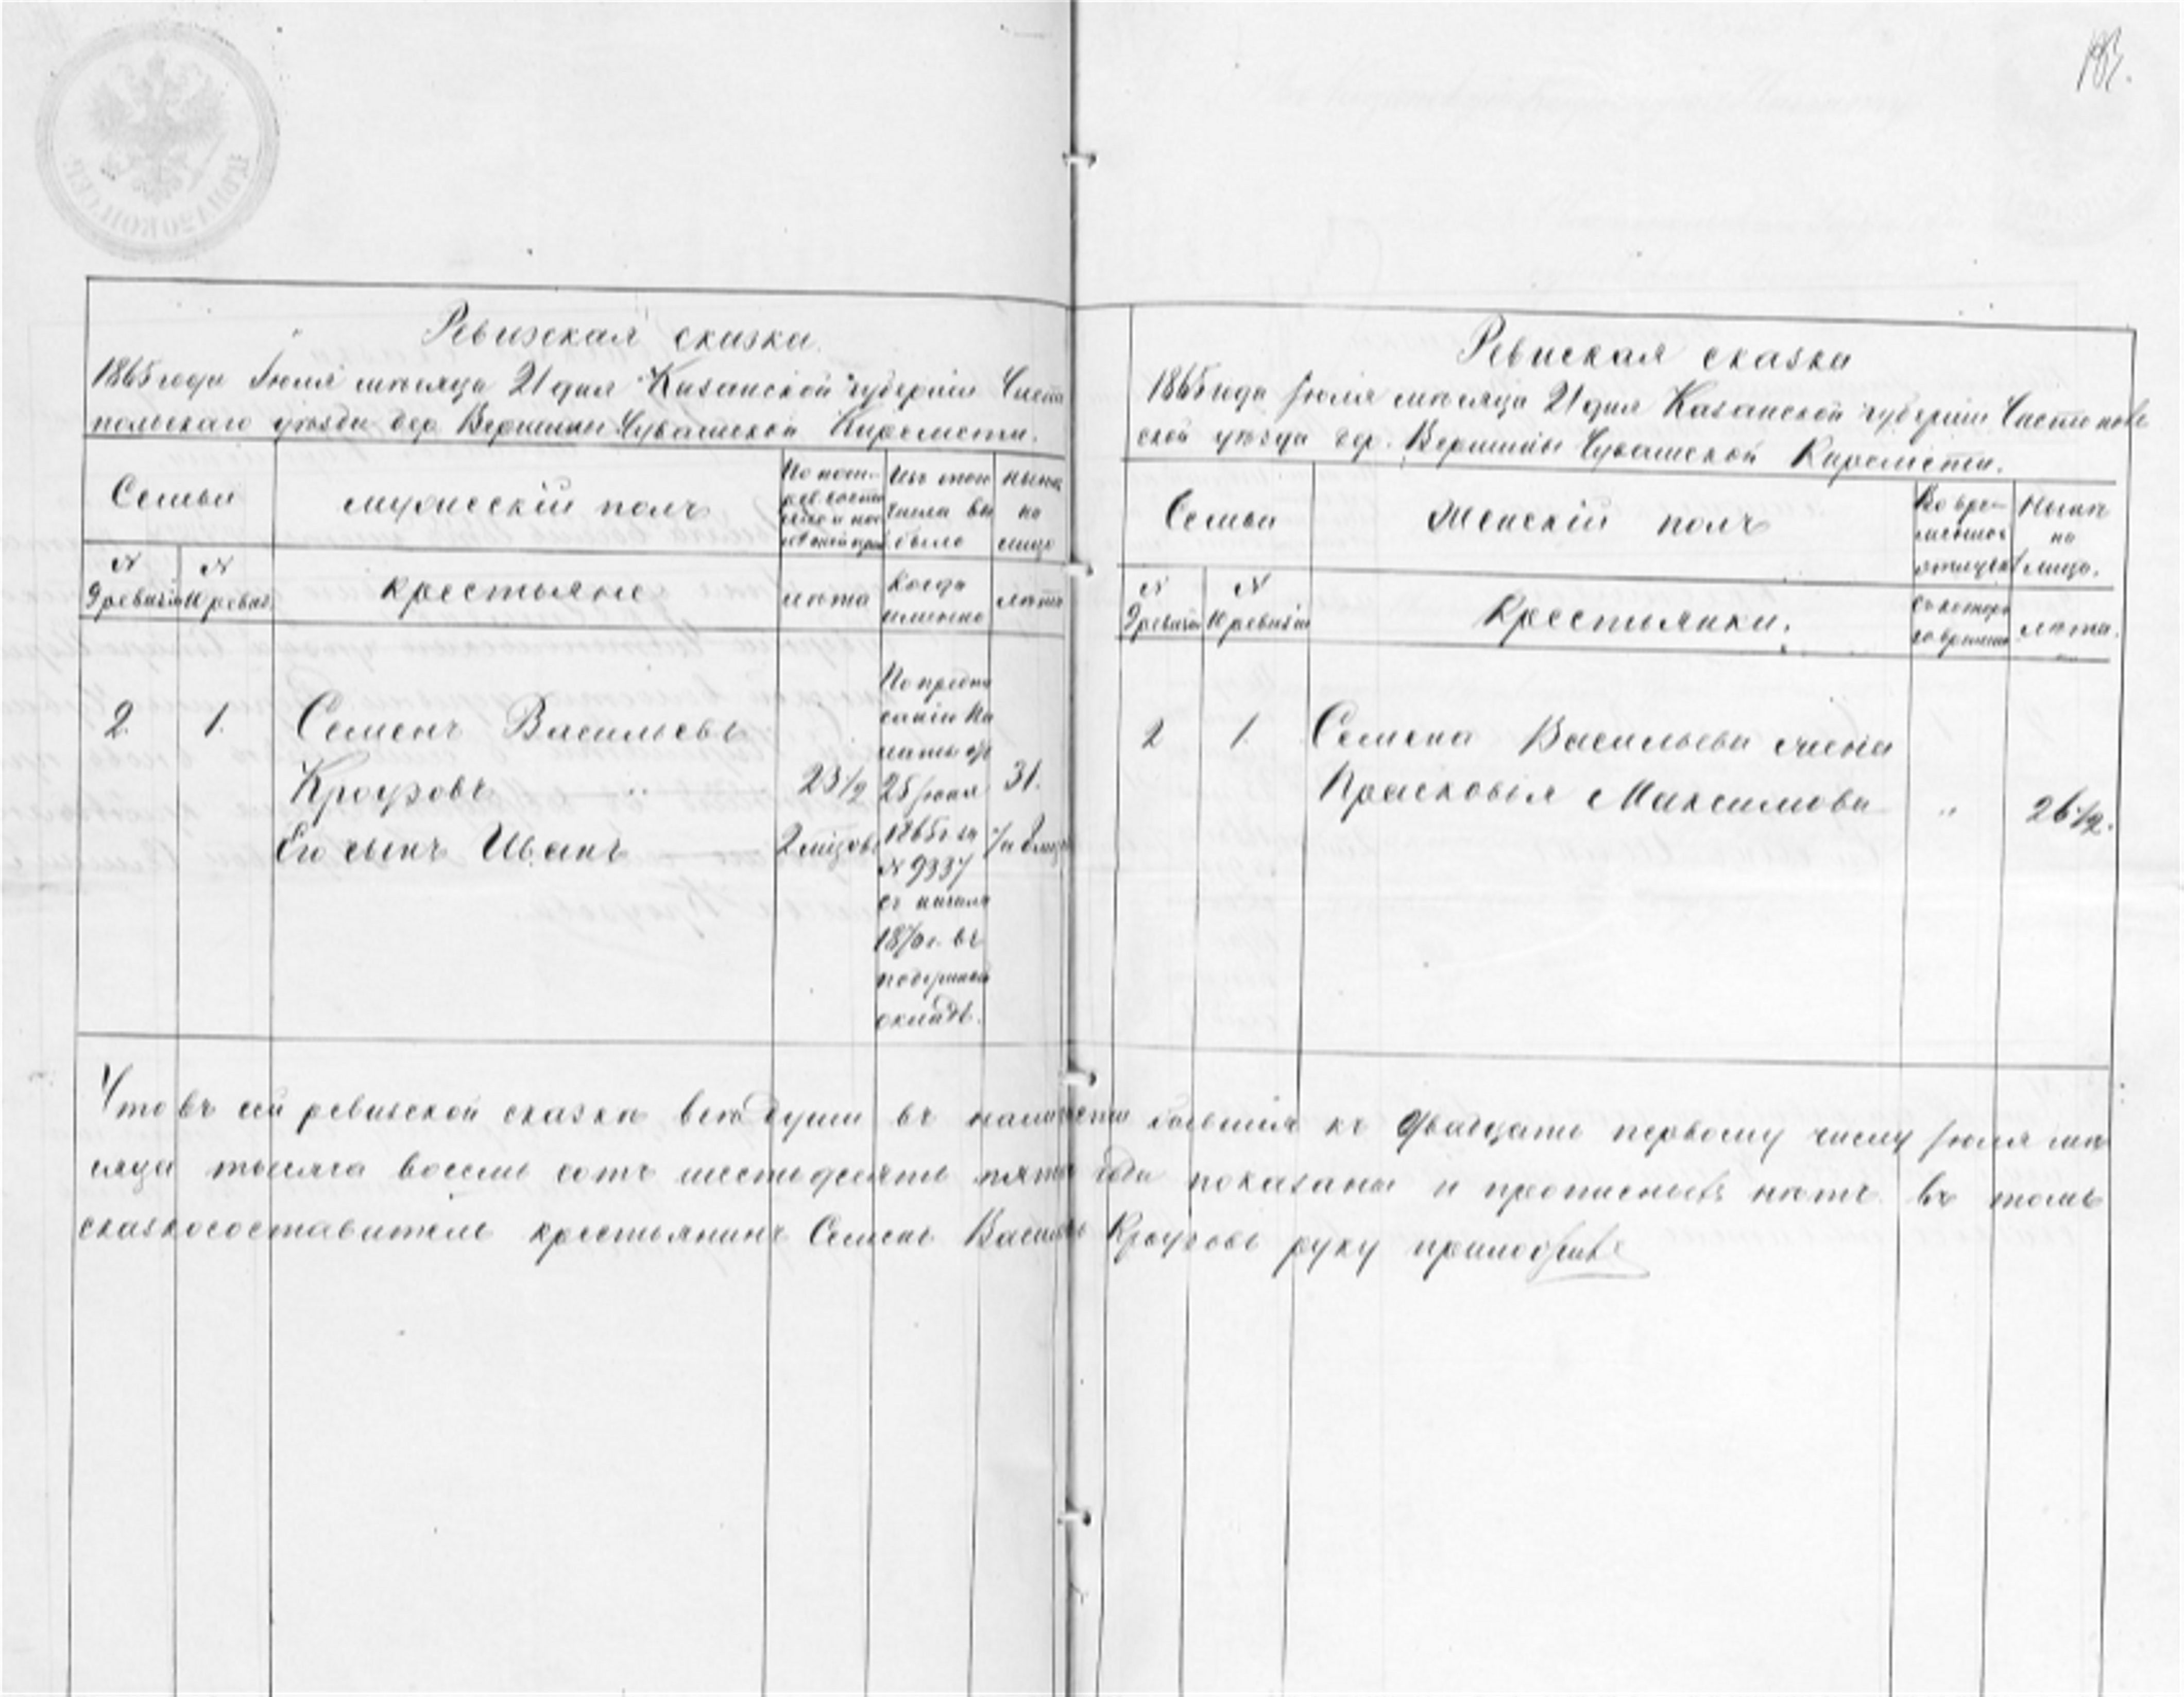 Ревизская сказка
1865 года Июля мѣсяца 21 дня Казанской губерніи Чисто
польскаго уѣзда дер. Вершины Чувашской Киреметы.
Семьи
мужескій полъ
Изъ того
числа вы
было
нынѣ
на
лицо
N
9 ревизіи
N
10 ревиз.
крестьяне
лѣта
когда
именно
лѣта
2.
1.
Семенъ Васильевъ
Кроуговъ "
Его сынъ Иванъ
23 1/2
2 мѣсяц.
По предпи
санію Па
латы от
25 Іюня
1865 г. за
N 9337
съ начала
1870 г. въ
подушный
окладѣ.
31.
Ревиская сказка
1865 года Іюля мѣсяца 21 дня Казанской губерніи Чистополь
ской уѣзда дер. Вершины Чувашской Киреметы.
Семьи
Женскій полъ
Во вре-
менной
отлучкѣ
Нынѣ
на
лицо.
N
9 ревизіи
N
10 ревизіи
Крестьянки.
съ котора
го времени
лѣта.
2
1
Семена Васильева жена
Прасковья Максимова
"
26 1/2.
Что въ сей ревизской сказкѣ всѣ души въ наличности бывшія къ двадцать первому числу Іюля мѣ
сяца тысяча восемь сотъ шестьдесять пятаго года показаны и прописныхъ нѣтъ въ томъ
сказкосоставитель крестьянинъ Семенъ Васильевъ Кроуговъ руку приложилъ